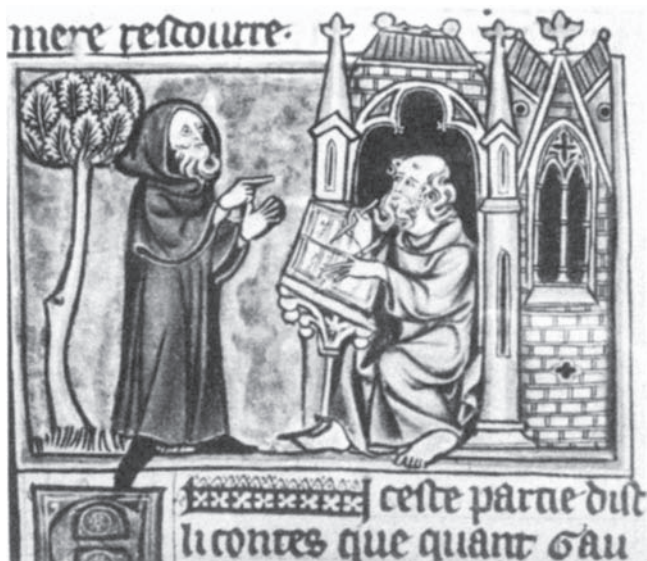 mere rescourre.
E
ceste partie dist
li contes que quant Gau